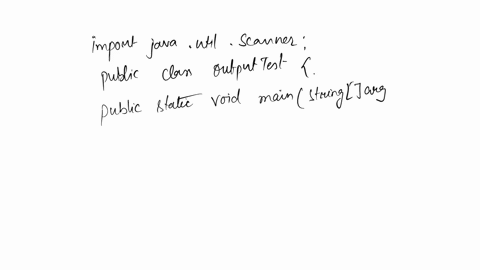 import java.util.Scanner;
public class OutputTest {.
public static void main(String[]arg